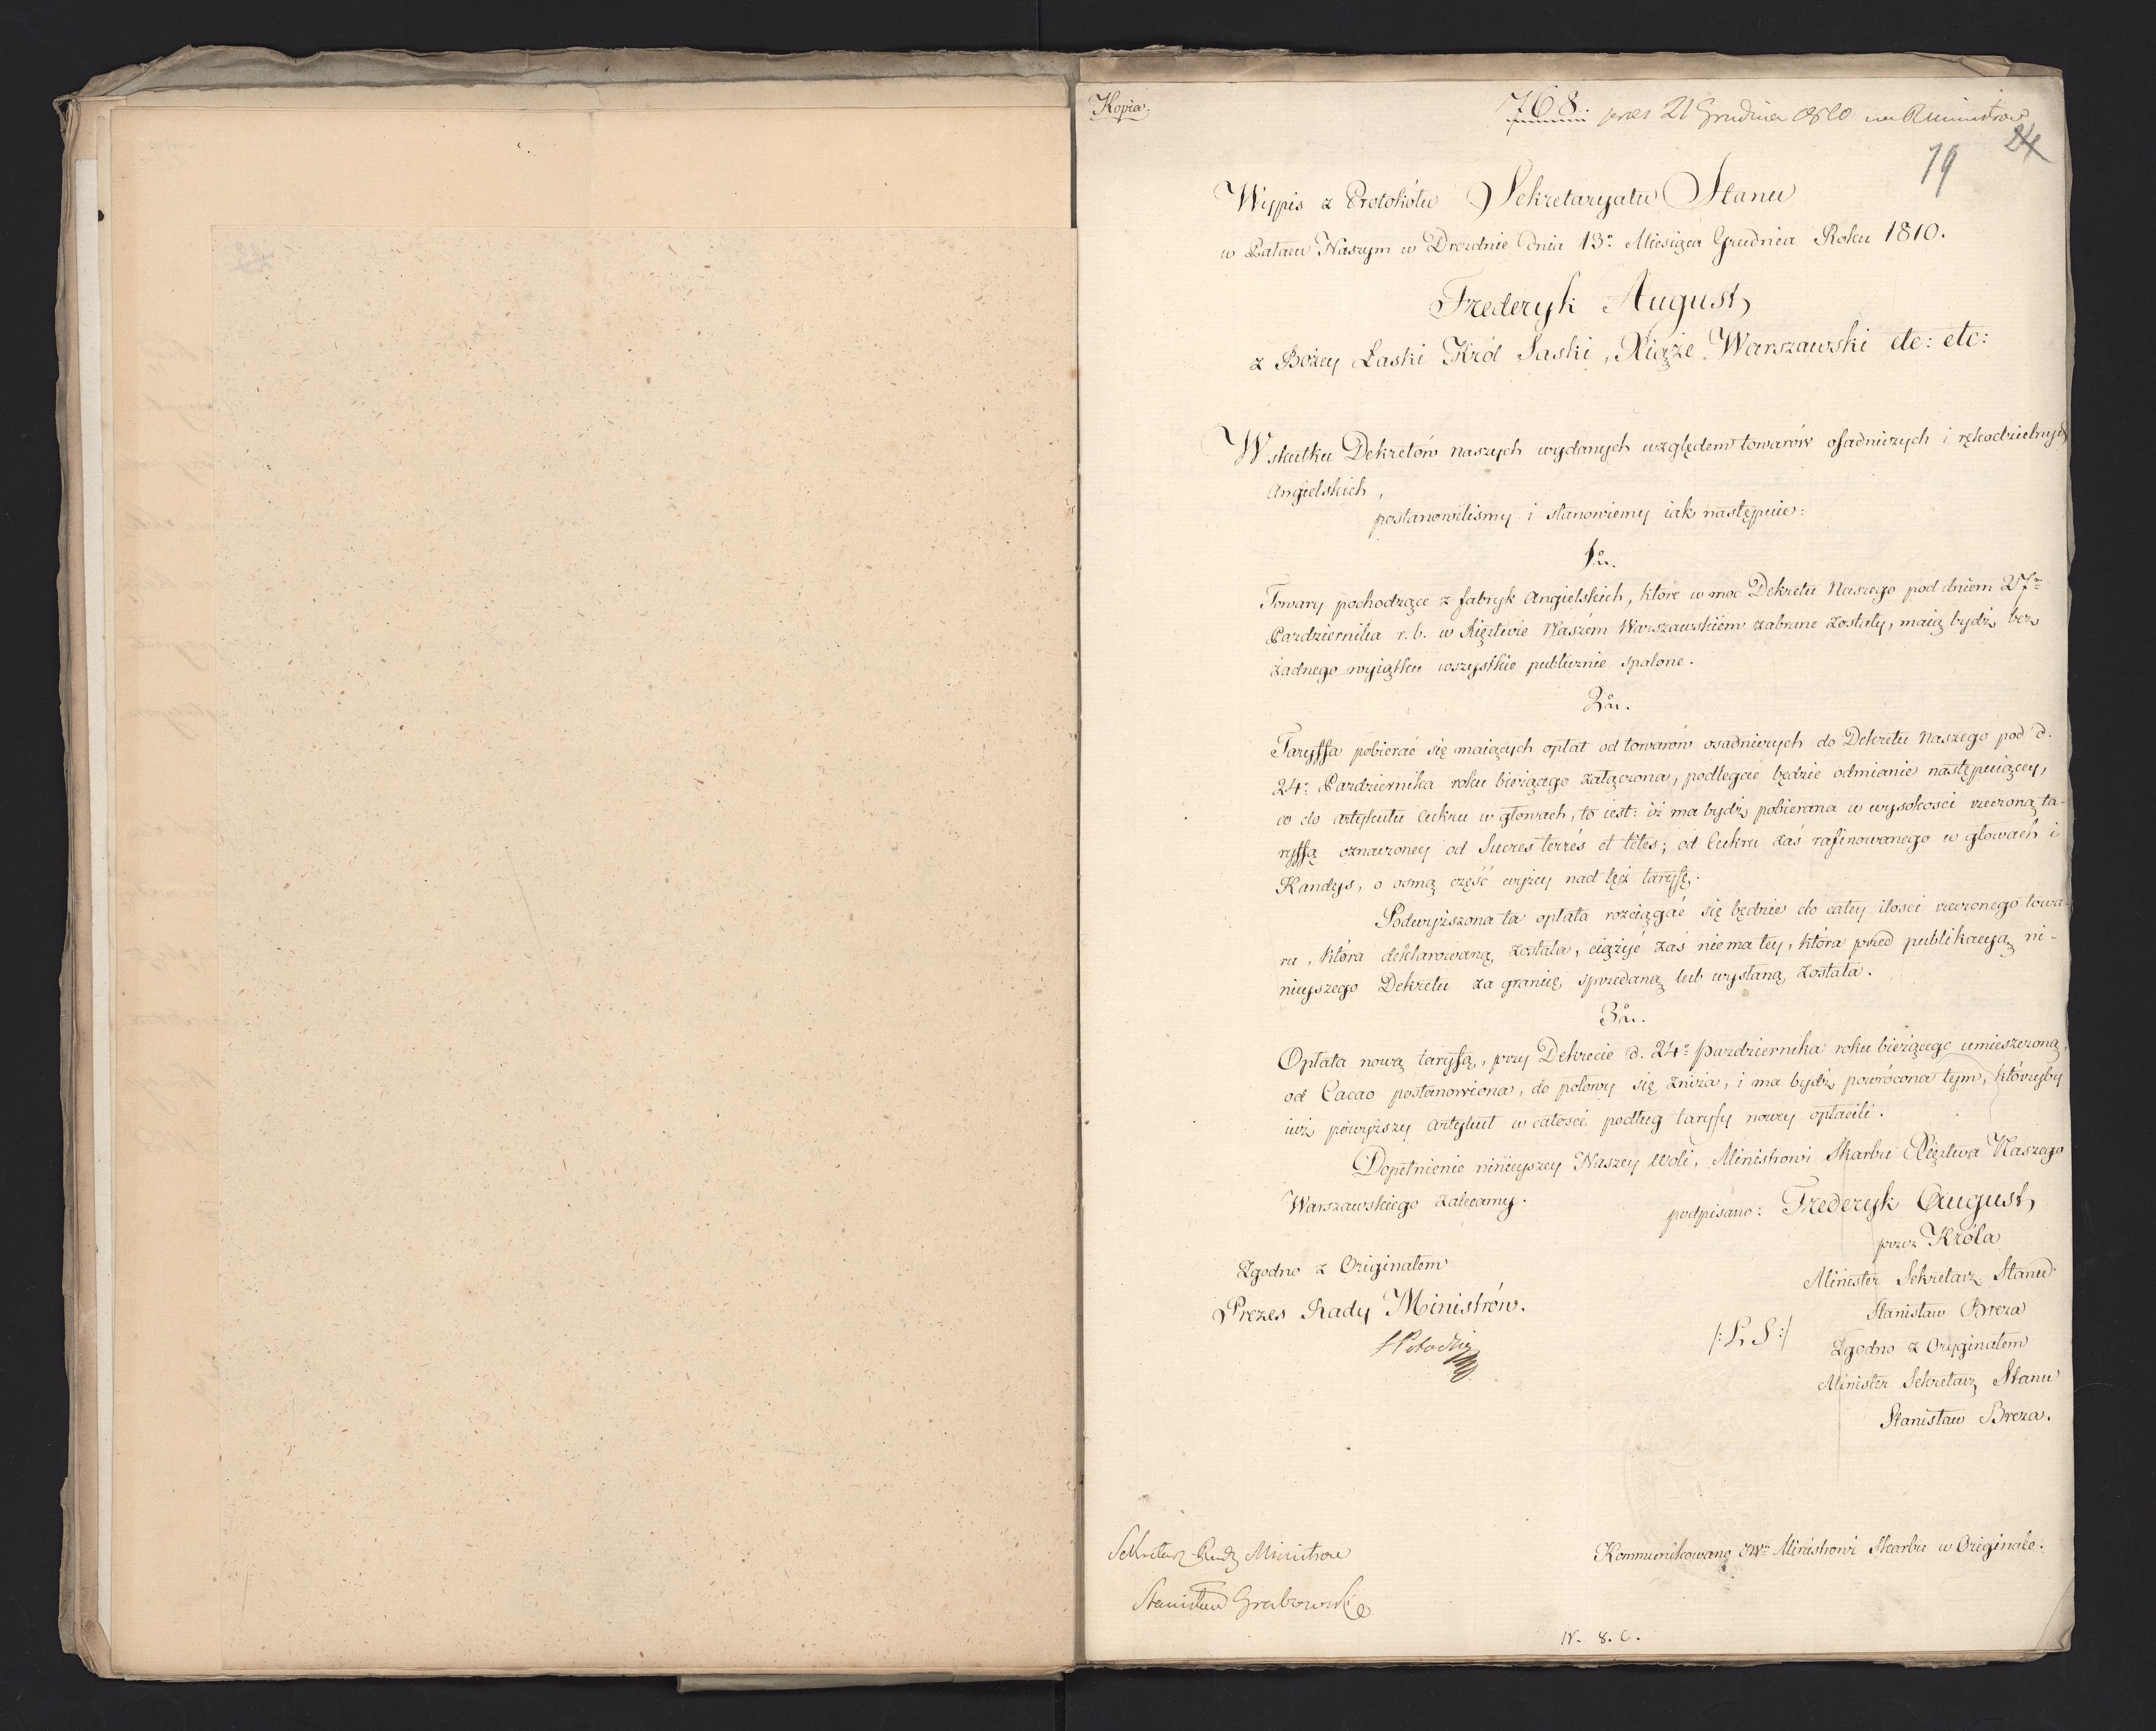 Kopia.
768. pres 21 Grudnia 1810 na R Ministrow
24
19
Wypis z Protokółu Sekretaryatu Stanu
w Pałacu Naszym w Dreznie dnia 13º Miesiąca Grudnia Roku 1810.
Frederyk August,
z Bożey Łaski Król Saski, Xiąże Warszawski etc: etc:
W skutku Dekretów naszych wydanych względem towarów osadniczych i rękodzielnych
Angielskich,
postanowilismy i stanowiemy iak następuie:
1º.
Towary pochodzące z fabryk Angielskich, które w moc Dekretu Naszego pod dniem 27m
Pazdziernika r. b. w Xięztwie Naszém Warszawskiém zabrane zostały, maią bydź bez
żadnego wyiątku wszystkie publicznie spalone.
2º.
Taryffa pobierać się maiących opłat od towarów osadniczych do Dekretu Naszego pod d.
24º Pazdziernika roku bieżącego załączona, podlegać będzie odmianie następuiącey,
co do artykułu Cukru w głowach, to iest: iż ma bydź pobierana w wysokosci rzeczoną ta-
ryffą oznaczoney od Sucres terrés et têtes; od Cukru zaś rafinowanego w głowach i
Kandys, o osmą część wyżey nad tęż taryfę.
Podwyższona ta opłata rozciągać się będzie do całey ilosci rzeczonego towa-
ru, która deklarowaną została, ciążyć zaś nie ma tey, która przed publikacyą ni-
nieyszego Dekretu za granicę sprzedaną lub wysłaną została.
3º.
Opłata nową taryfą, przy Dekrecie d. 24º Pazdziernika roku bieżącego umieszczoną,
od Cacao postanowiona, do połowy się zniża, i ma bydź powrócona tym, którzyby
iuż powyższy artykuł w całosci podług taryfy nowey opłacili.
Dopełnienie ninieyszey Naszey Woli, Ministrowi Skarbu Xięztwa Naszego
Warszawskiego zalecamy.
podpisano: Frederyk August,
przez Króla
Minister Sekretarz Stanu
Stanisław Breza
/: L S :/
Zgodno z Oryginałem
Minister Sekretarz Stanu
Stanisław Breza.
Zgodno z Originałem
Prezes Rady Ministrów.
S Potocki
Sekretarz Rady Ministrow
Stanisław Grabowski
Kommunikowano JWu Ministrowi Skarbu w Originale.